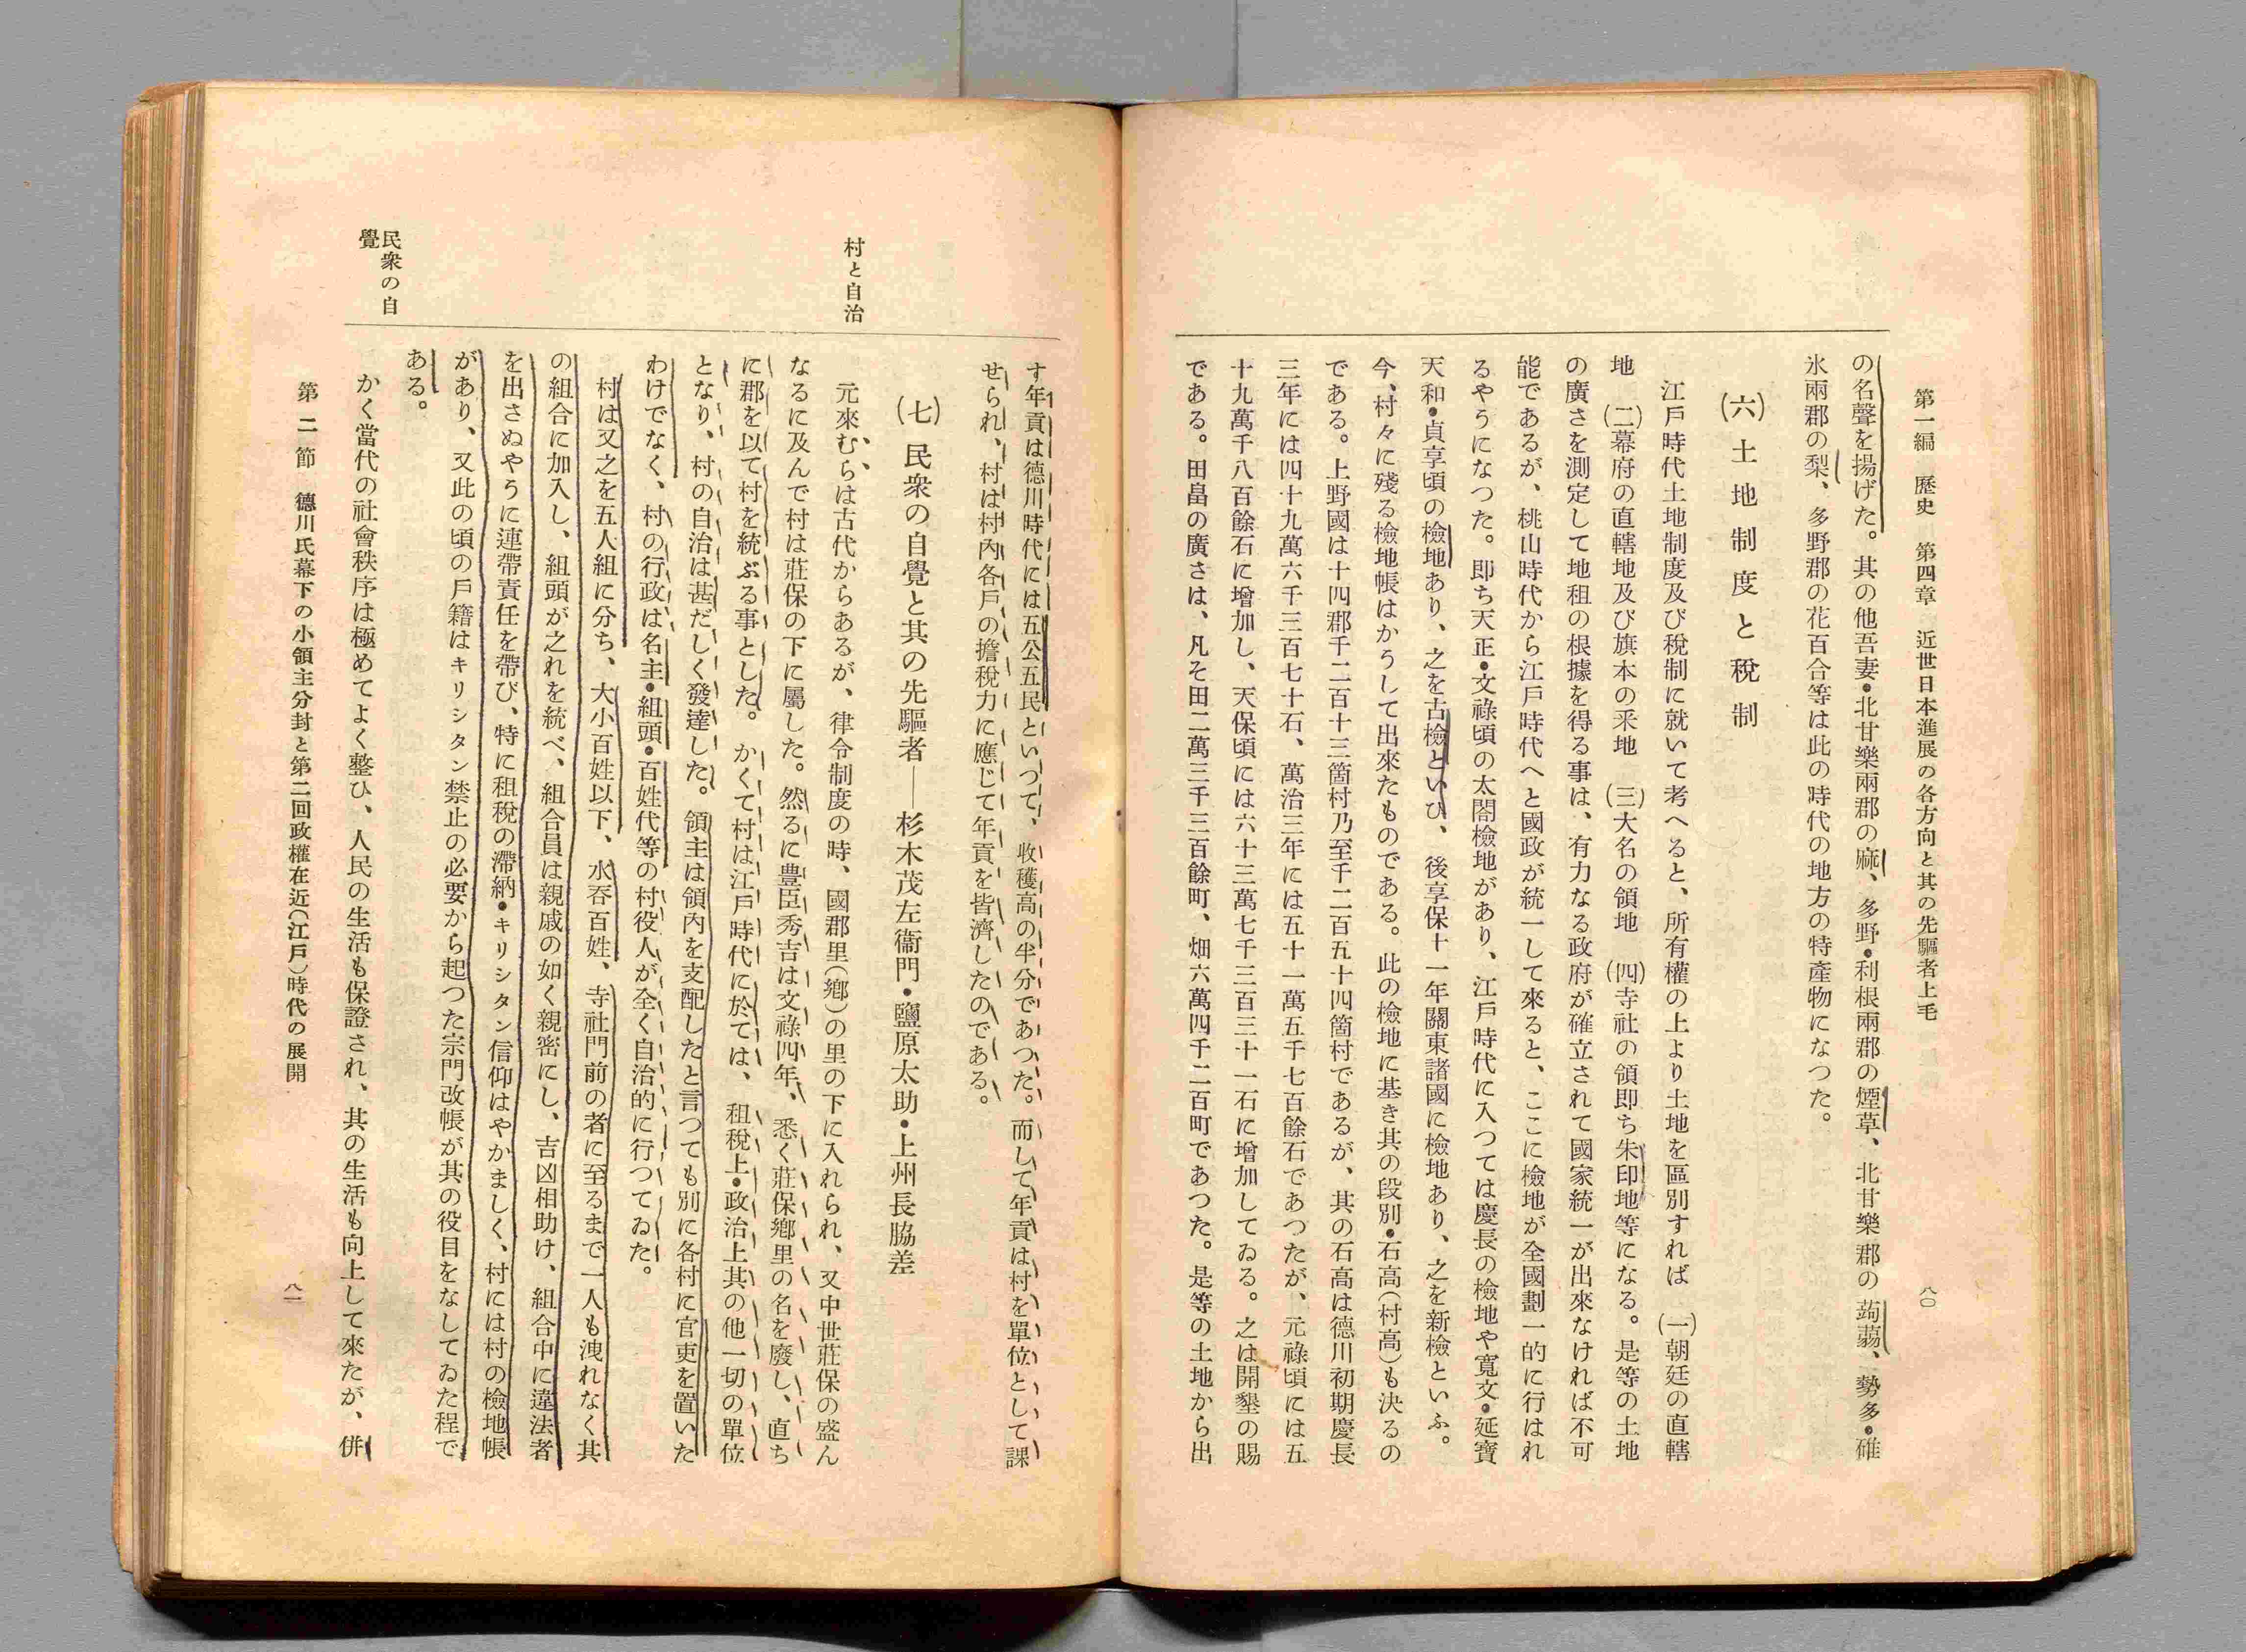 第一編　歷史　第四章　近世日本進展の各方向と其の先驅者上毛
八〇
の名聲を揚げた。其の他吾妻•北甘樂兩郡の麻、多野•利根兩郡の煙草、北甘樂郡の蒟蒻、勢多•碓
氷兩郡の梨、多野郡の花百合等は此の時代の地方の特產物になつた。
(六)　土地制度と稅制
江戶時代土地制度及び稅制に就いて考へると、所有權の上より土地を區別すれば　(一)朝廷の直轄
地　(二)幕府の直轄地及び旗本の釆地　(三)大名の領地　(四)寺社の領卽ち朱印地等になる。是等の土地
の廣さを測定して地租の根據を得る事は、有力なる政府が確立されて國家統一が出來なければ不可
能であるが、桃山時代から江戶時代へと國政が統一して來ると、ここに檢地が全國劃一的に行はれ
るやうになつた。卽ち天正•文祿頃の太閤檢地があり、江戶時代に入つては慶長の檢地や寬文•延寶
天和•貞享頃の檢地あり、之を古檢といひ、後享保十一年關東諸國に檢地あり、之を新檢といふ。
今、村々に殘る檢地帳はかうして出來たものである。此の檢地に基き其の段別•石高(村高)も決るの
である。上野國は十四郡千二百十三箇村乃至千二百五十四箇村であるが、其の石高は德川初期慶長
三年には四十九萬六千三百七十石、萬治三年には五十一萬五千七百餘石であつたが、元祿頃には五
十九萬千八百餘石に增加し、天保頃には六十三萬七千三百三十一石に增加してゐる。之は開墾の賜
である。田畠の廣さは、凡そ田二萬三千三百餘町、畑六萬四千二百町であつた。是等の土地から出
す年貢は德川時代には五公五民といつて、收穫高の半分であつた。而して年貢は村を單位として課
せられ、村は村內各戶の擔稅力に應じて年貢を皆濟したのである。
(七)　民衆の自覺と其の先驅者――杉木茂左衞門•鹽原太助•上州長脇差
村と自治
元來むらは古代からあるが、律令制度の時、國郡里(鄕)の里の下に入れられ、又中世莊保の盛ん
なるに及んで村は莊保の下に屬した。然るに豐臣秀吉は文祿四年、悉く莊保鄕里の名を廢し、直ち
に郡を以て村を統ぶる事とした。かくて村は江戶時代に於ては、租稅上•政治上其の他一切の單位
となり、村の自治は甚だしく發達した。領主は領內を支配したと言つても別に各村に官吏を置いた
わけでなく、村の行政は名主•組頭•百姓代等の村役人が全く自治的に行つてゐた。
村は又之を五人組に分ち、大小百姓以下、水吞百姓、寺社門前の者に至るまで一人も洩れなく其
の組合に加入し、組頭が之れを統べ、組合員は親戚の如く親密にし、吉凶相助け、組合中に違法者
を出さぬやうに連帶責任を帶び、特に租稅の滯納•キリシタン信仰はやかましく、村には村の檢地帳
があり、又此の頃の戶籍はキリシタン禁止の必要から起つた宗門改帳が其の役目をなしてゐた程で
ある。
民衆の自
覺
かく當代の社會秩序は極めてよく整ひ、人民の生活も保證され、其の生活も向上して來たが、併
第二節　德川氏幕下の小領主分封と第二回政權在近(江戶)時代の展開
八一